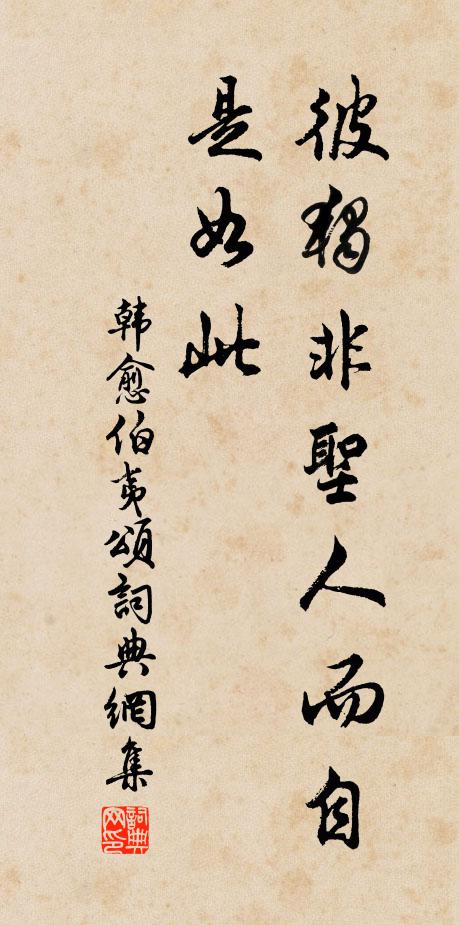 彼獨非聖人而自
是如此
韩愈伯夷頌詞典網集
詞典网印